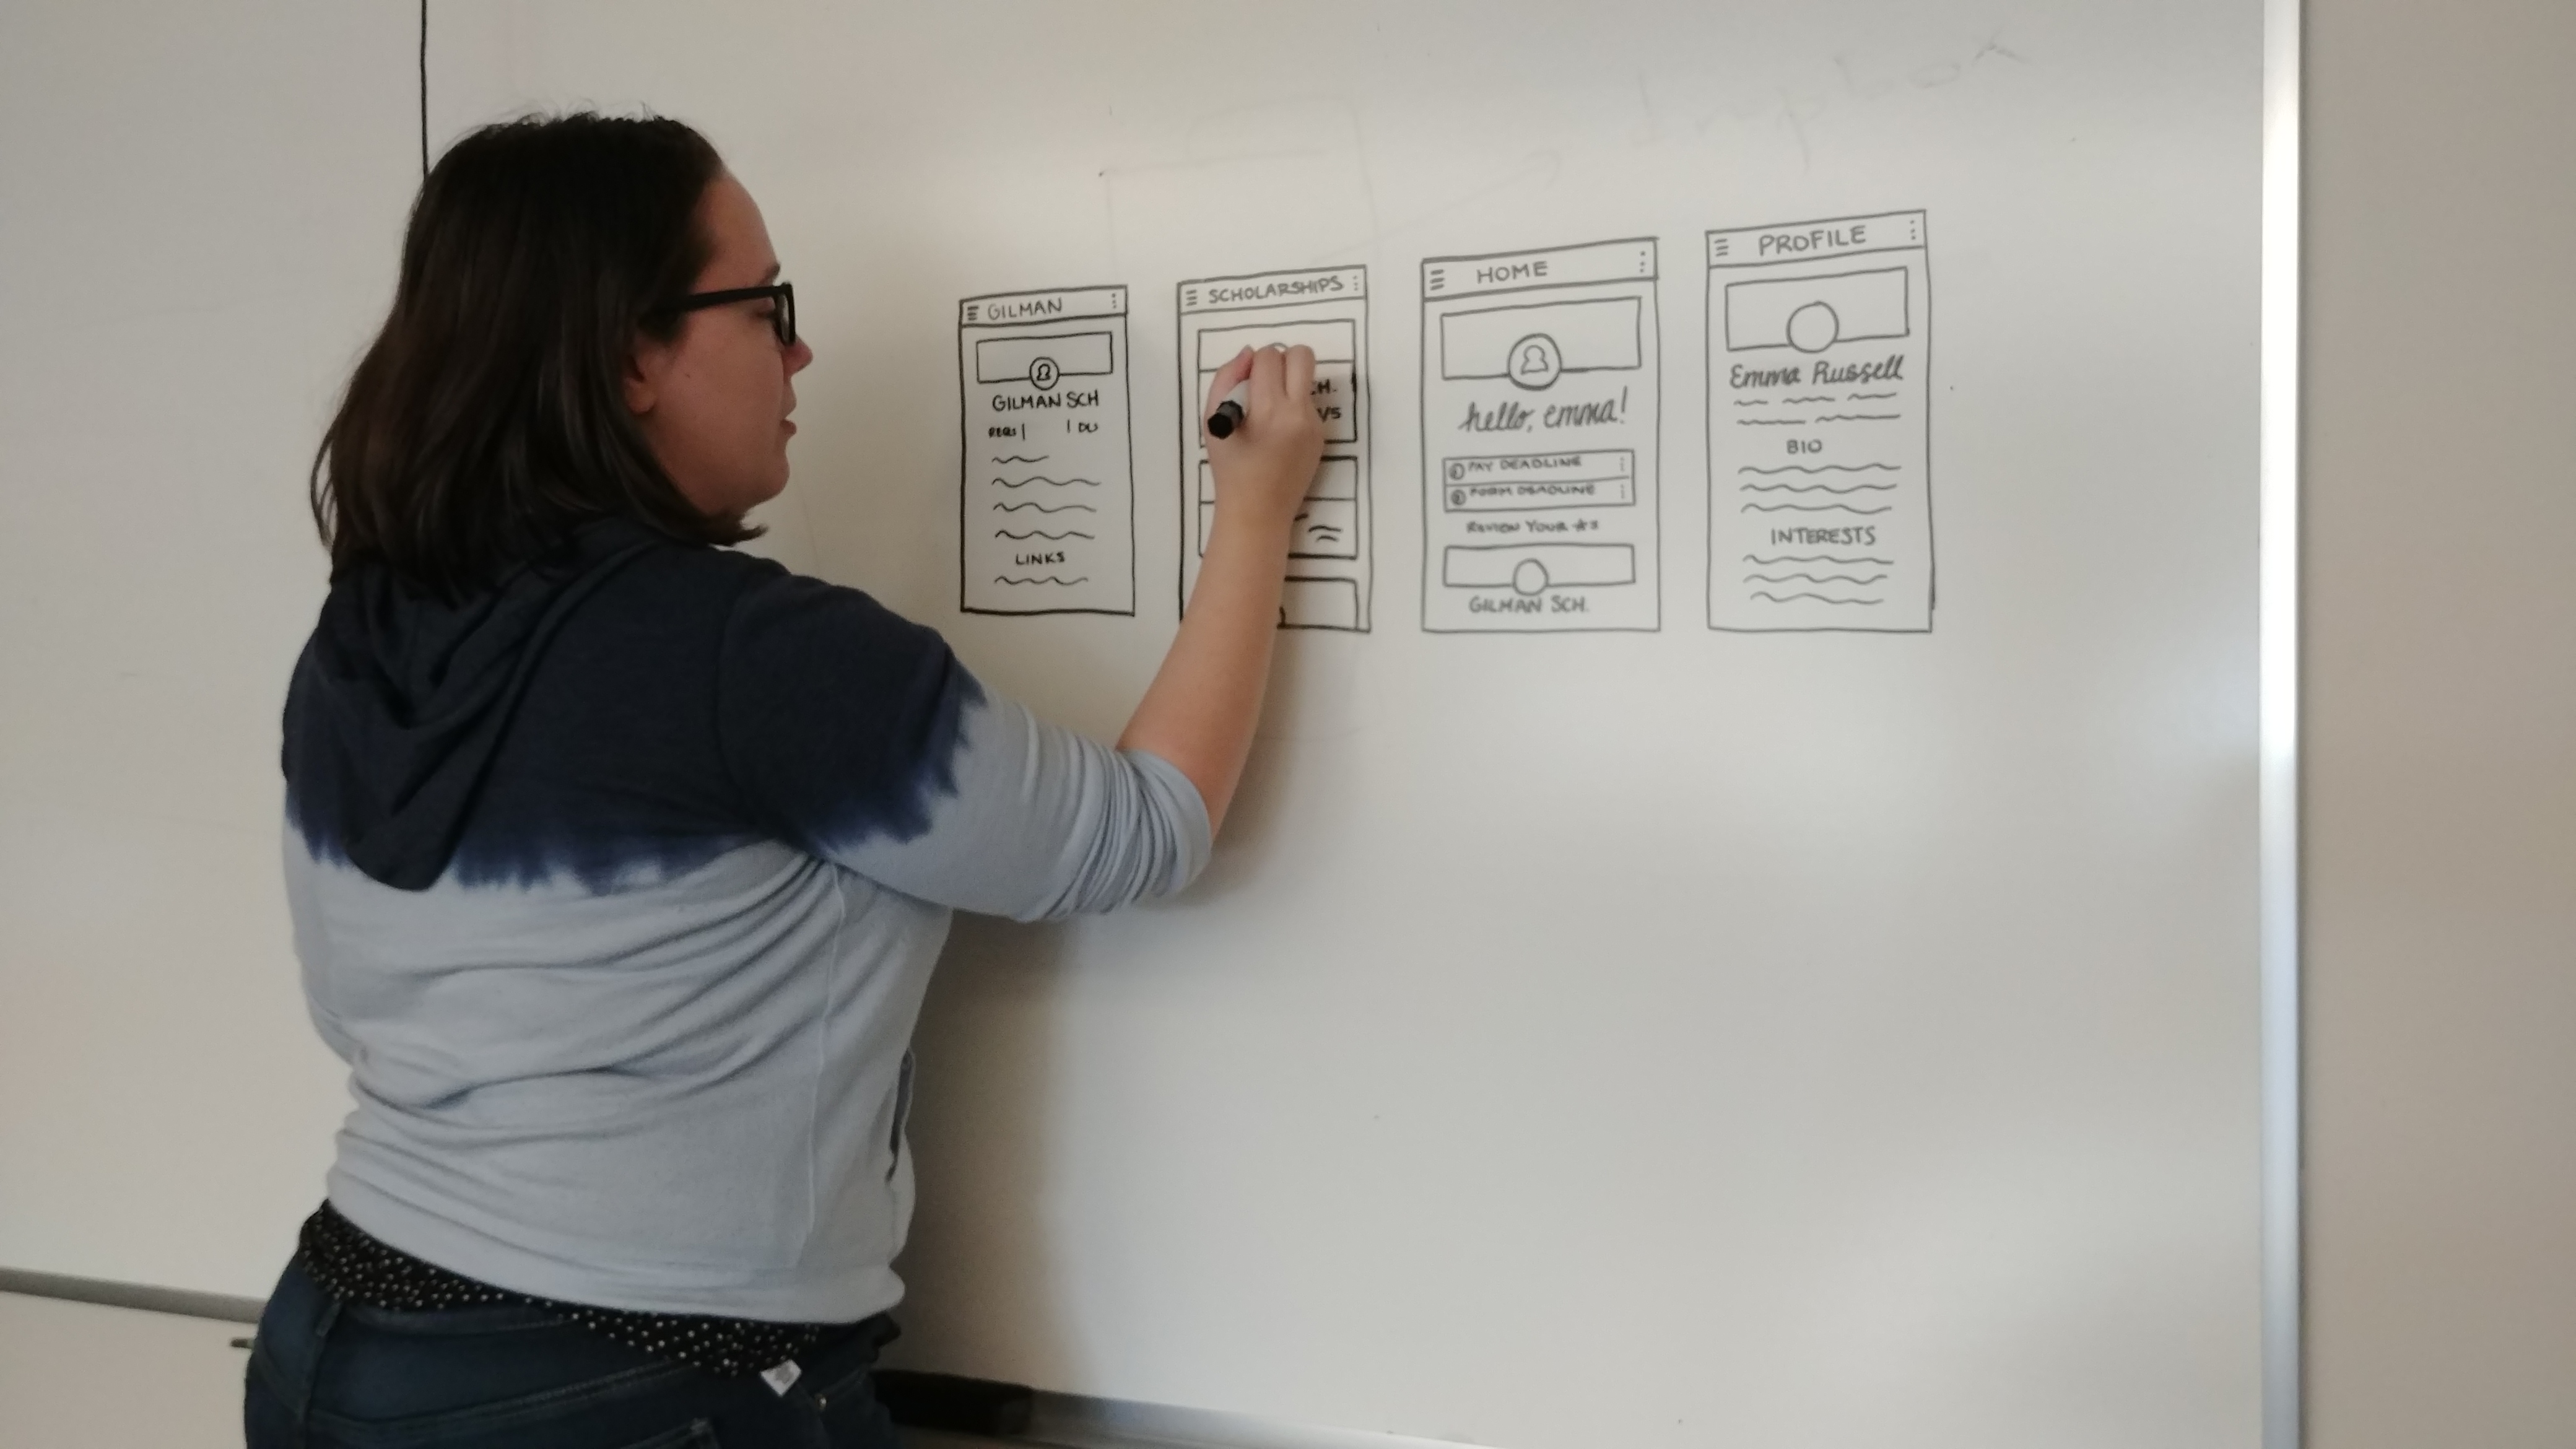 GILMAN
GILMAN SCH
REQS
LINKS
SCHOLARSHIPS
HOME
hello, emma!
PAY DEADLINE
FORM DEADLINE
REVIEW YOUR
GILMAN SCH.
PROFILE
Emma Russell
BIO
INTERESTS